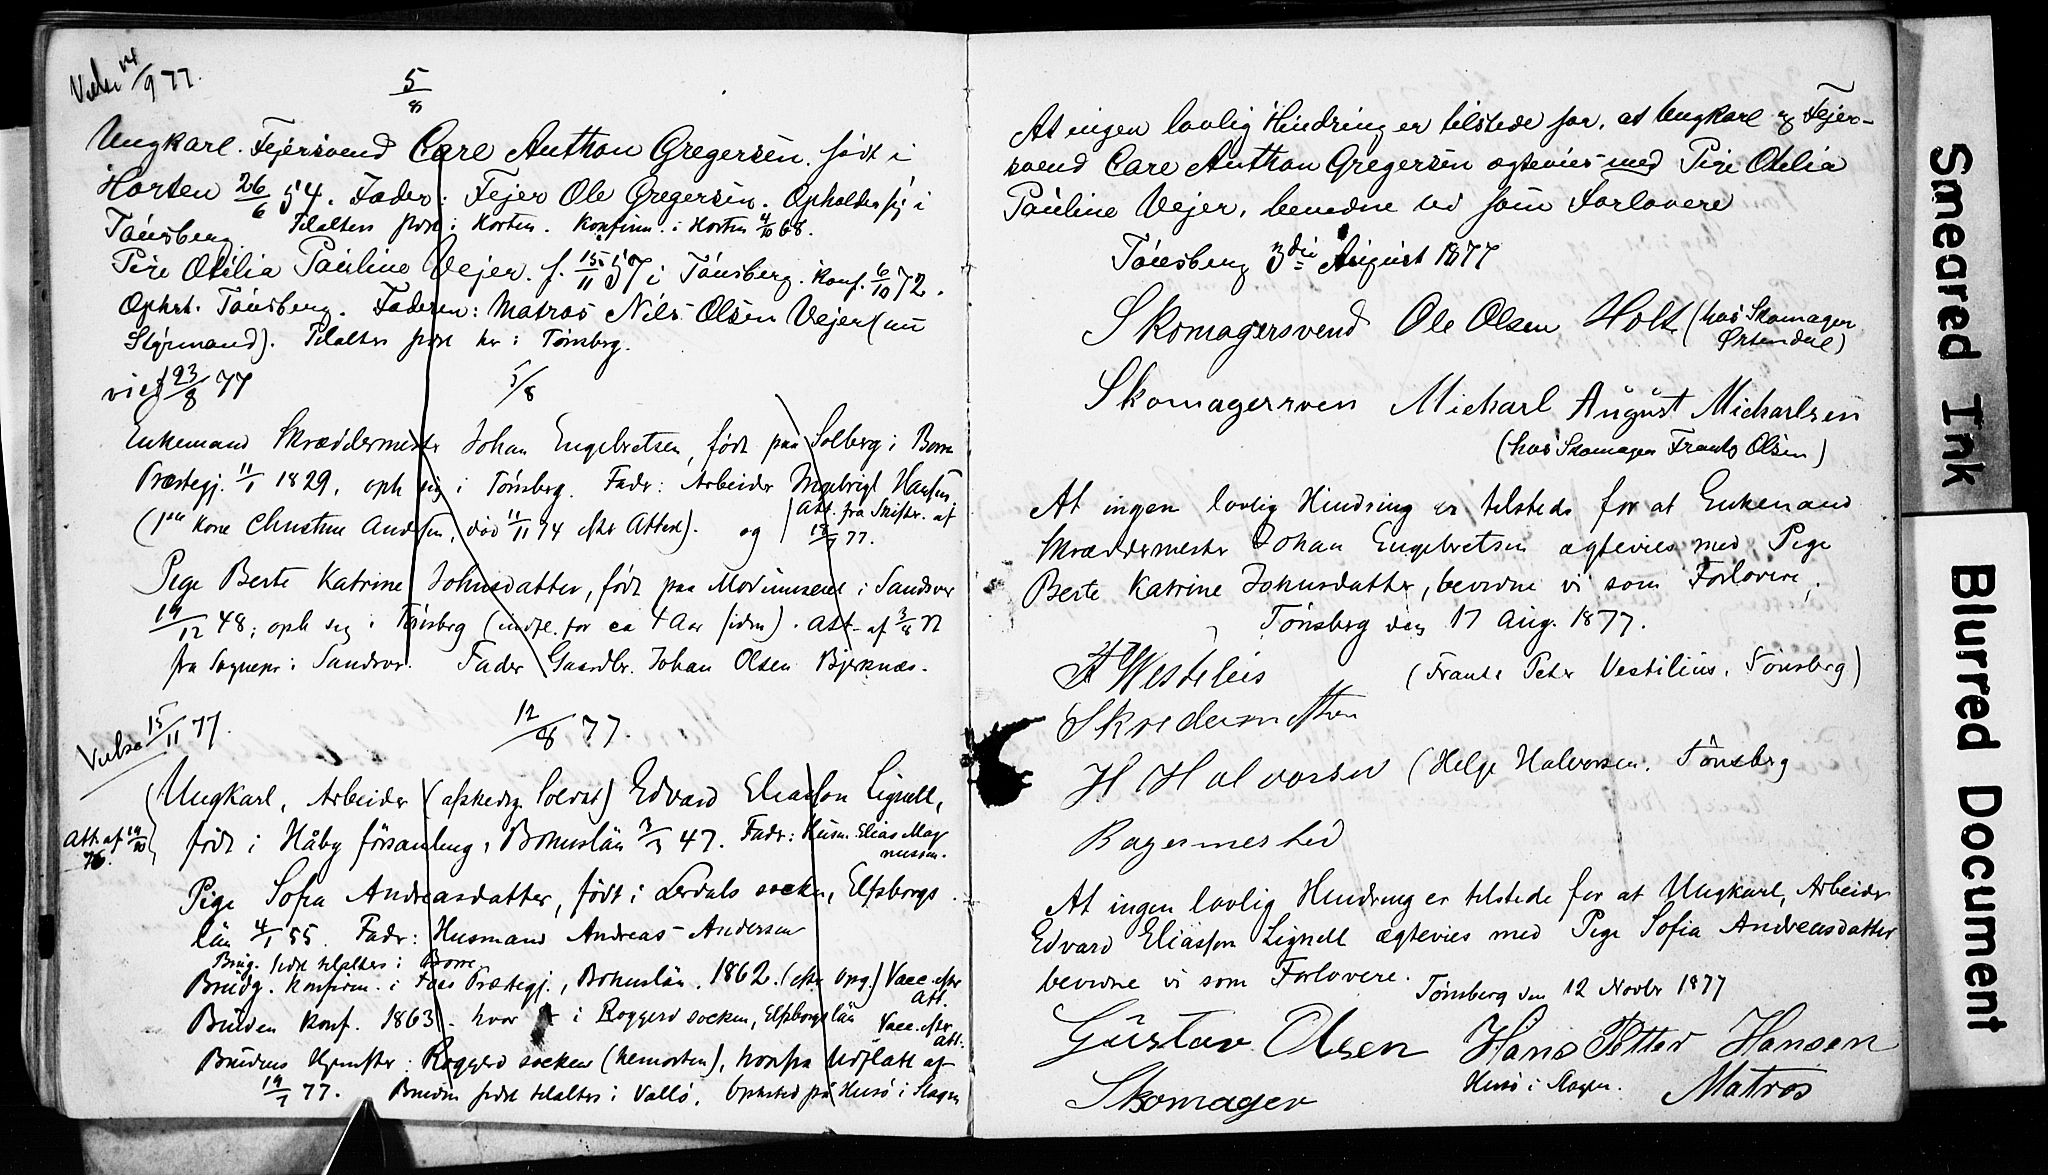 Viede 14/9 77.
5/8
Ungkarl. Fejersvend Carl Anthon Gregersen. født i
Horten 26/6 54. Fader: Fejer Ole Gregersen. Opholder sig i
Tønsberg. Tilalters sidst i Horten. Konfirm. i Horten 4/10 68.
Pige Otilia Pauline Vejer. f. 15/11 57 i Tønsberg. Konf. 6/10 72.
Ophst. Tønsberg. Faderen: Matros Nils Olsen Vejer (nu
Styrmand). Tilalters sidst her i Tønsberg.
viet 23/8 77
5/8
Enkemand Skræddermester Johan Engebretsen, født paa Solberg i Borre
Præstegj. 11/1 1829, oph. sig i Tønsberg. Fader: Arbeider Ingebrigt Hansen.
(1ste Kone Christine Andersen, død 11/11 74 efter Attest). og
Att. fra Skifter. af
18/7 77.
Pige Berte Katrine Johnsdatter, født paa i Sandsvær
19/12 48; oph. sig i Tønsberg (indfl. for ca 4 Aar siden). Att. af 3/8 77
fra Sognepr. i Sandsvær. Fader Gaardbr. Johan Olsen Bjerknæs.
Viede 15/11 77.
12/8 77.
Ungkarl, Arbeider (afskedig. Soldat) Edvard Eliasson Lignell,
Att. af 19/10 76.
født i Håby församling, Bohuslän 3/3 47. Fader: Husm. Elias Mag-
nussen.
Pige Sofia Andreasdatter, født i Lerdals socken, Elfsborgs
län 4/1 55. Fader: Husmand Andreas Andersen
Brug. sidst tilalters i Borre
Brudg. Konfirm. i Foss Præstegj., Bohuslän. 1862. (efter Opg.) Vacc. efter
Att.
Bruden Konf. 1863. hvor i Roggerd socken, Elfsborgs län Vacc. efter
att.
Brudens Hjemster: Roggerd socken (hemorten), hvorfra Udfl.att af
19/7 77. Bruden sidst tilalters i Vallö. Opholdsted på Husö i Slagen
At ingen lovlig Hindring er tilstede for, at Ungkarl og Fejer-
svend Carl Anthon Gregersen ægtevies med Pige Otilia
Pauline Vejer, bevidne vi som Forlovere
Tønsberg 3die August 1877
Skomagersvend Ole Olsen Holt (hos Skomager
Ørtendal)
Skomagersven Michael August Michaelsen
(hos Skomager Frants Olsen)
At ingen lovlig Hindring er tilstede for at Enkemand
Skræddermester Johan Engebretsen ægtevies med Pige
Berte Katrine Johnsdatter, bevidne vi som Forlovere;
Tønsberg den 17 Aug. 1877.
(Frants Peter Vestilius. Tønsberg)
H Halvorsen (Helge Halvorsen. Tönsberg
Bagermester
At ingen lovlig Hindring er tilstede for at Ungkarl, Arbeider
Edvard Eliasson Lignell ægtevies med Pige Sofia Andreasdatter
bevidne vi som Forlovere.
Tønsberg den 12 Novbr 1877
Gustav Olsen Hans Petter Hansen
Husö i Slagen. Matros
Skomager
Smeared Ink
Blurred Document